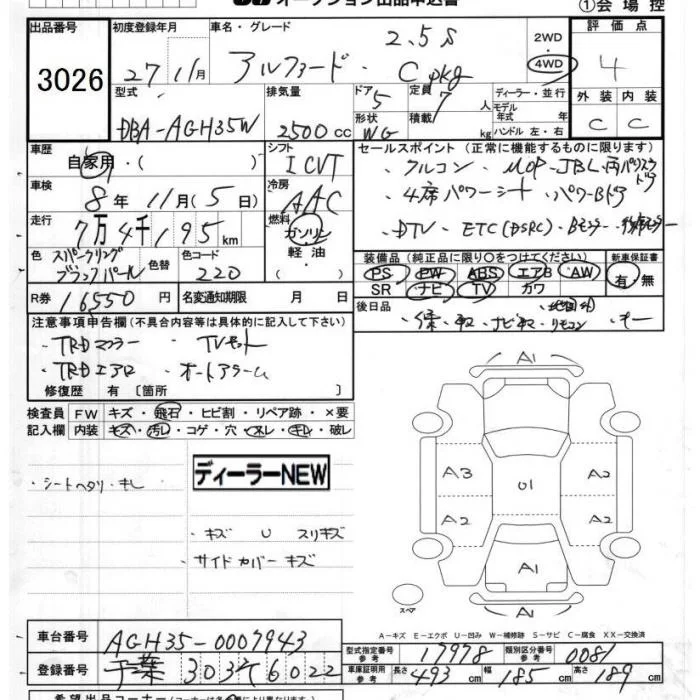 オークション出品申込書 ①会場控
出品番号 初度登録年月 車名・グレード 2.5S 2WD・4WD 評価点
3026 27 11月 アルファード・C pkg 4
型式 DBA-AGH35W 排気量 2500cc ドア 5 形状 WG 定員 7人 積載 kg ディーラー・並行 モデル年式 年式 ハンドル 左・右 外装 C 内装 C
車歴 自家用・( ) シフト ICVT セールスポイント(正常に機能するものに限ります)
・フルコン・MOP-JBL・両パワスラドア
車検 8年11月(5日) 冷房 AAC ・4席パワーシート・パワーBドア
走行 7万4千195km 燃料 ガソリン 軽油 ( ) ・DTV・ETC(DSRC)・Bモニター
色 スパークリングブラックパール 色替 色コード 220 装備品(純正品に限り○をつけてください) 新車保証書
PS PW ABS エアB AW 有・無
SR ナビ TV カワ
R券 16550円 名変通知期限 月 日 後日品
・保・取・ナビ取・リモコン
注意事項申告欄(不具合内容等は具体的に記入して下さい)
・TRDマフラー ・TVキット
・TRDエアロ ・オートアラーム
修復歴 有 〔箇所 〕
検査員 FW キズ・飛石・ヒビ割・リペア跡・×要
記入欄 内装 キズ・汚レ・コゲ・穴・スレ・キレ・破レ
ディーラーNEW
・シートヘタリ・キレ
・キズ U スリキズ
サイドカバーキズ
A1
A1
A3 A2
U1
A2 A2
A1
A1
スペア
A-キズ E-エクボ U-凹み W-補修跡 S-サビ C-腐食 XX-交換済
車台番号 AGH35-0007943 型式指定番号 参考 17978 類別区分番号 参考 0081
登録番号 千葉 303 て 6022 車庫証明用 参考 長さ 493cm 幅 185cm 高さ 189cm
希望出品コーナー